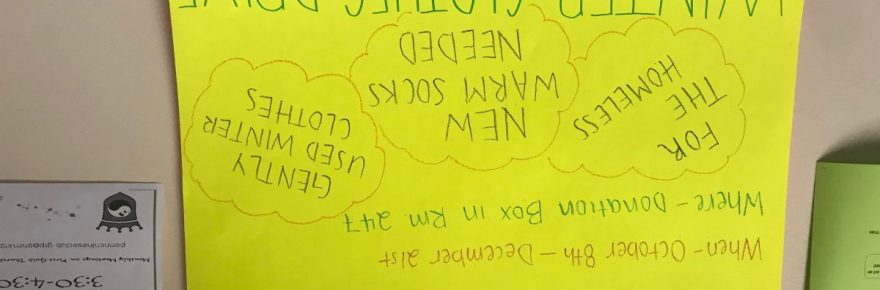 When - October 8th – December 21st
Where - Donation Box in Rm 247
FOR
THE
HOMELESS
NEW
WARM SOCKS
NEEDED
GENTLY
USED WINTER
CLOTHES
WINTER CLOTHES DRIVE
3:30-4:30
Monthly Meetings on First Gold